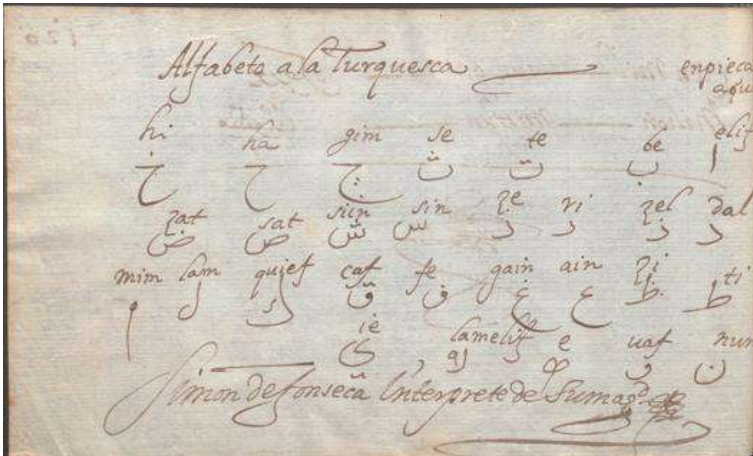 Alfabeto a la Turquesca enpieca
aqui
hi ha gim se te be elif
خ ح چ ث ت ب ا
zat sat siin sin ze ri zel dal
ض ص ش س ز ر ذ د
mim lam quief caf fe gain ain zi ti
م ل ك ق ف غ ع ظ ط
ie lamelif e uaf nun
ى لا ه و ن
Simon de fonseca Interprete de Su mag.d